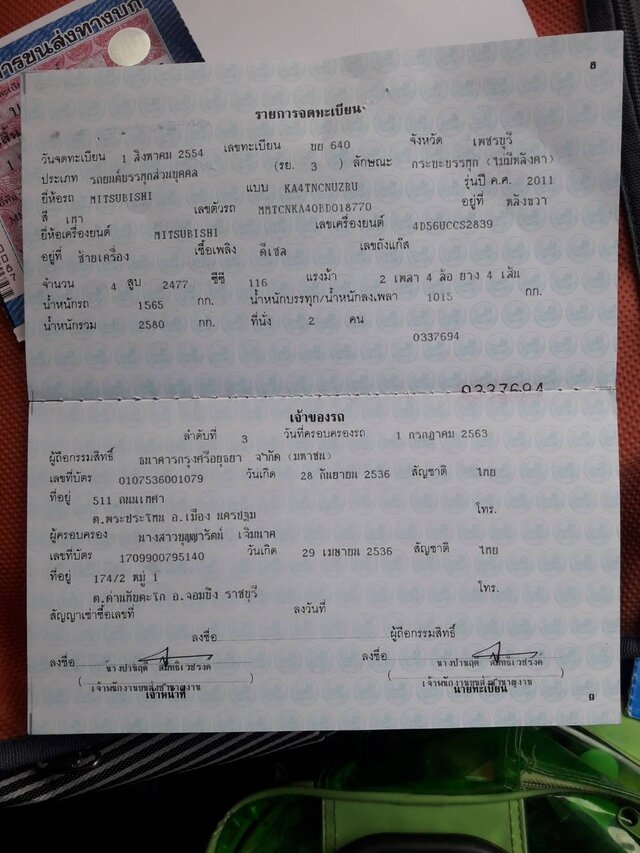 การขนส่งทางบก
8
รายการจดทะเบียน
วันจดทะเบียน 1 สิงหาคม 2554 เลขทะเบียน ขย 640 จังหวัด เพชรบุรี
ประเภท รถยนต์บรรทุกส่วนบุคคล (รย. 3) ลักษณะ กระบะบรรทุก (ไม่มีหลังคา)
ยี่ห้อรถ MITSUBISHI แบบ KA4TNCNUZRU รุ่นปี ค.ศ. 2011
สี เทา เลขตัวรถ MMTCNKA40BD018770 อยู่ที่ หลังขวา
ยี่ห้อเครื่องยนต์ MITSUBISHI เลขเครื่องยนต์ 4D56UCCS2839
อยู่ที่ ซ้ายเครื่อง เชื้อเพลิง ดีเซล เลขถังแก๊ส
จำนวน 4 สูบ 2477 ซีซี 116 แรงม้า 2 เพลา 4 ล้อ ยาง 4 เส้น
น้ำหนักรถ 1565 กก. น้ำหนักบรรทุก/น้ำหนักลงเพลา 1015 กก.
น้ำหนักรวม 2580 กก. ที่นั่ง 2 คน
0337694
0337694
เจ้าของรถ
ลำดับที่ 3 วันที่ครอบครองรถ 1 กรกฎาคม 2563
ผู้ถือกรรมสิทธิ์ ธนาคารกรุงศรีอยุธยา จำกัด (มหาชน)
เลขที่บัตร 0107536001079 วันเกิด 28 กันยายน 2536 สัญชาติ ไทย
ที่อยู่ 511 ถนนเทศา
ต.พระประโทน อ.เมือง นครปฐม โทร.
ผู้ครอบครอง นางสาวบุญญารัตน์ เจิมนาค
เลขที่บัตร 1709900795140 วันเกิด 29 เมษายน 2536 สัญชาติ ไทย
ที่อยู่ 174/2 หมู่ 1
ต.ด่านทับตะโก อ.จอมบึง ราชบุรี โทร.
สัญญาเช่าซื้อเลขที่ ลงวันที่
ลงชื่อ ผู้ถือกรรมสิทธิ์
ลงชื่อ ลงชื่อ
(เจ้าพนักงานขนส่งชำนาญงาน) (เจ้าพนักงานขนส่งชำนาญงาน)
เจ้าหน้าที่ นายทะเบียน
9